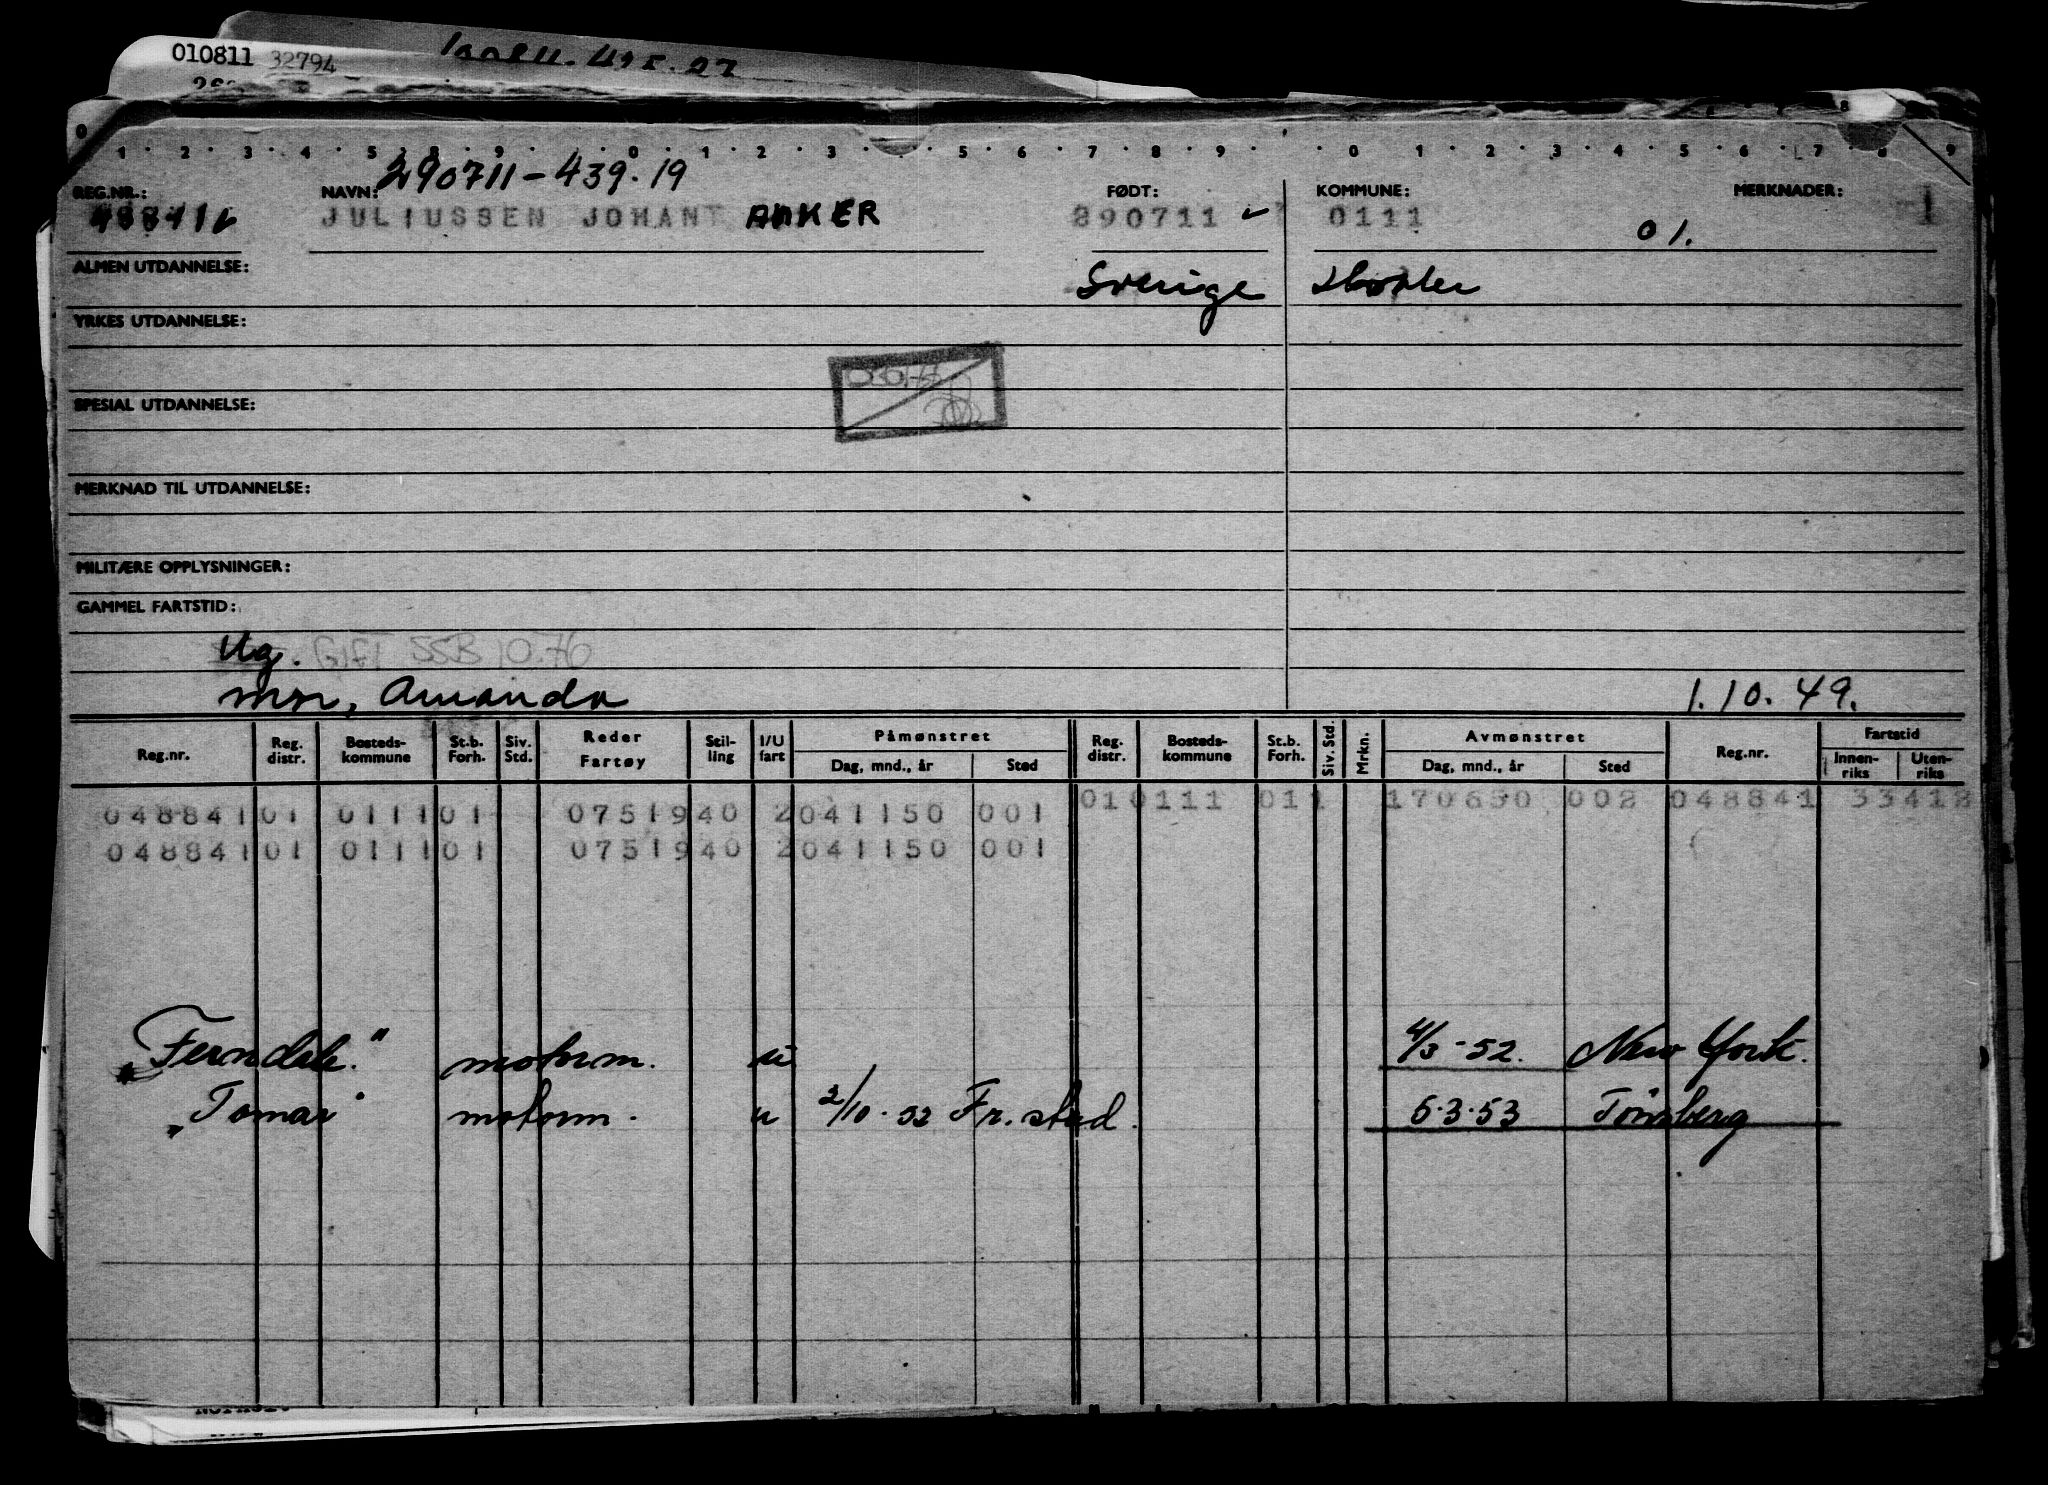 010811 32794
0 1 2 3 4 5 8 9 0 1 2 3 5 6 7 8 9 0 1 2 3 4 5 6 7 8 9
290711-439.19
REG.NR.: NAVN: FØDT: KOMMUNE: MERKNADER:
48841 JULIUSSEN JOHAN ANKER 290711 0111 1
01.
ALMEN UTDANNELSE:
Sverige Hvaler
YRKES UTDANNELSE:
SPESIAL UTDANNELSE:
MERKNAD TIL UTDANNELSE:
MILITÆRE OPPLYSNINGER:
GAMMEL FARTSTID:
Ug. GIFT SSB 10.76
mor, Amanda 1.10.49.
Reg.nr. Reg. distr. Bosteds-kommune St.b. Forh. Siv. Std. Reder Fartøy Stil-ling I/U fart Påmønstret Dag, mnd., år Sted Reg. distr. Bosteds-kommune St.b. Forh. Siv. Std. Mrkn. Avmønstret Dag, mnd., år Sted Reg.nr. Fartstid Innen-riks Uten-riks
010111 011 170650 002 048841 33412
048841 01 0111 01 07519 40 2 041150 001
048841 01 0111 01 07519 40 2 041150 001
"Ferndale." motorm. u 4/3-52. New York.
"Tomar" motorm. u 2/10-52 Fr.stad. 5.3.53 Tønsberg